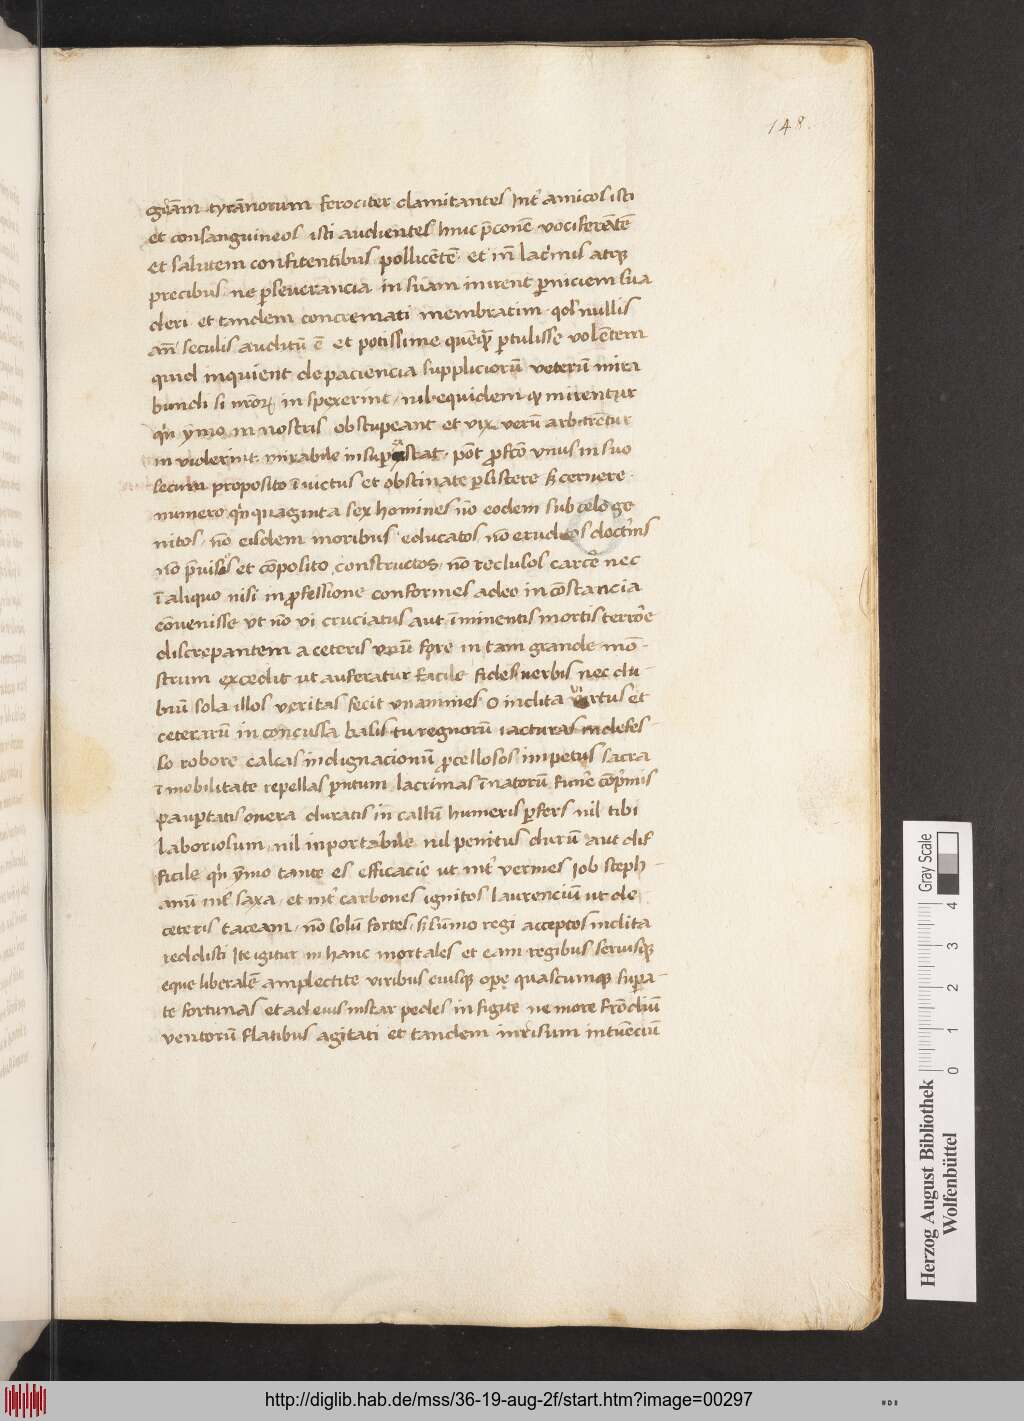 148.
gr̃am tyrãnorum ferociter clamitantes Int̃ amicos isti
et consanguineos isti audientes hinc p̃conẽ vociferẽtẽ
et salutem confitentibus pollicẽtẽ et iñ lacr̃mis atq̃
precibus ne p̃severancia in suam inirent p̃niciem sua
deri et tandem concremati membratim qd̃ nullis
añ seculis auditũ ẽ et potissime quẽq̃ p̃tulisse volẽtem
quid inquient de paciencia suppliciorũ veterũ mira
bundi si nr̃oꝝ in spexerint nil equidem qd̃ mirentur
qñ ymo in nostris obstupeant et vix verũ arbitrẽtur
in viderint mirabile in sup̃ extat põt p̃fc̃o vnus in suo
secum proposito ĩvictus et obstinate p̃sistere s̃ cernere
numero qñquaginta sex homines nõ eodem sub celo ge
nitos nõ eisdem moribus educatos nõ eruditos doctr̃nis
nõ p̃visos et cõposito constructos nõ reclusos carcẽ nec
ĩ aliquo nisi in p̃fessione conformes adeo in cõstancia
cõvenisse vt nõ vi cruciatus aut ĩminentis mortis terrõre
discrepantem a ceteris vnũ fore in tam grande mõ-
strum excedit ut auferatur facile fides verbis nec du-
biũ sola illos veritas fecit vnanimes O inclita virtus et
ceterarũ in concussa basis tu regnorũ iacturas indefes-
so robore calcas indignacionũ p̃cellosos impetus sacra
ĩmobilitate repellas p̃ntum lacrimas ĩnatorũ funẽre cõp̃mis
paup̃tatis onera duratis in callũ humeris p̃fers nil tibi
laboriosum nil inportabile nil penitus durũ aut dif
ficile qñ ỹmo tante es efficacie ut int̃ vermes Job steph-
anũ int̃ saxa et int̃ carbones ignitos laurenciũ ut de
ceteris taceam nõ solũ fortes s̃ sũmo regi acceptos inclita
reddisti Ite igitur in hanc mortales et eam regibus seruisq̃
eque liberalẽ amplectite viribus eiusq̃ ope quascumq̃ sup̃a-
te fortunas et ad eius instar pedes in figite ne more frõdiũ
ventorũ flatibus agitati et tandem in risum intuẽciũ
Herzog August Bibliothek
Wolfenbüttel
Gray Scale
0 1 2 3 4
http://diglib.hab.de/mss/36-19-aug-2f/start.htm?image=00297